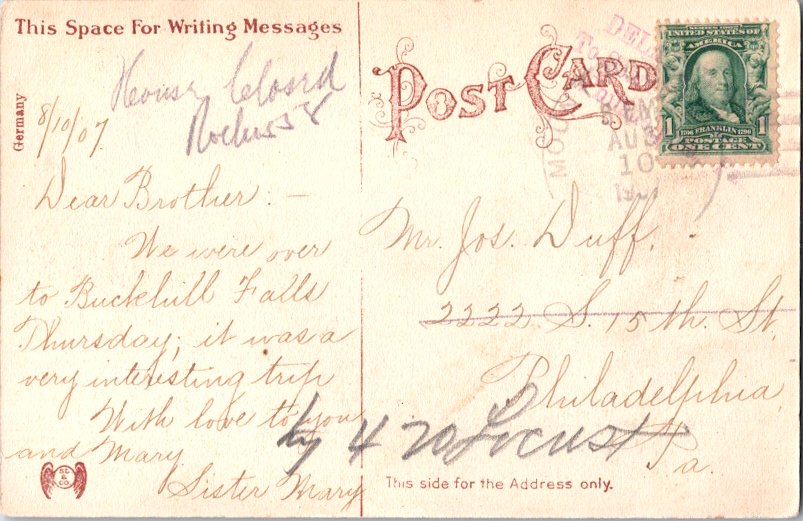 This Space For Writing Messages
Germany
8/10/07.
House Closed
Dear Brother: —
We were over
to Buckhill Falls
Thursday; it was a
very interesting trip
With love to you
and Mary
Sister Mary
POST CARD
AUG
10
SERIES 1902
UNITED STATES OF
AMERICA
1706 FRANKLIN 1790
1 1
POSTAGE
ONE CENT
Mr. Jos. Duff.
2222 S. 15th. St.
Philadelphia,
Pa.
Locust
This side for the Address only.